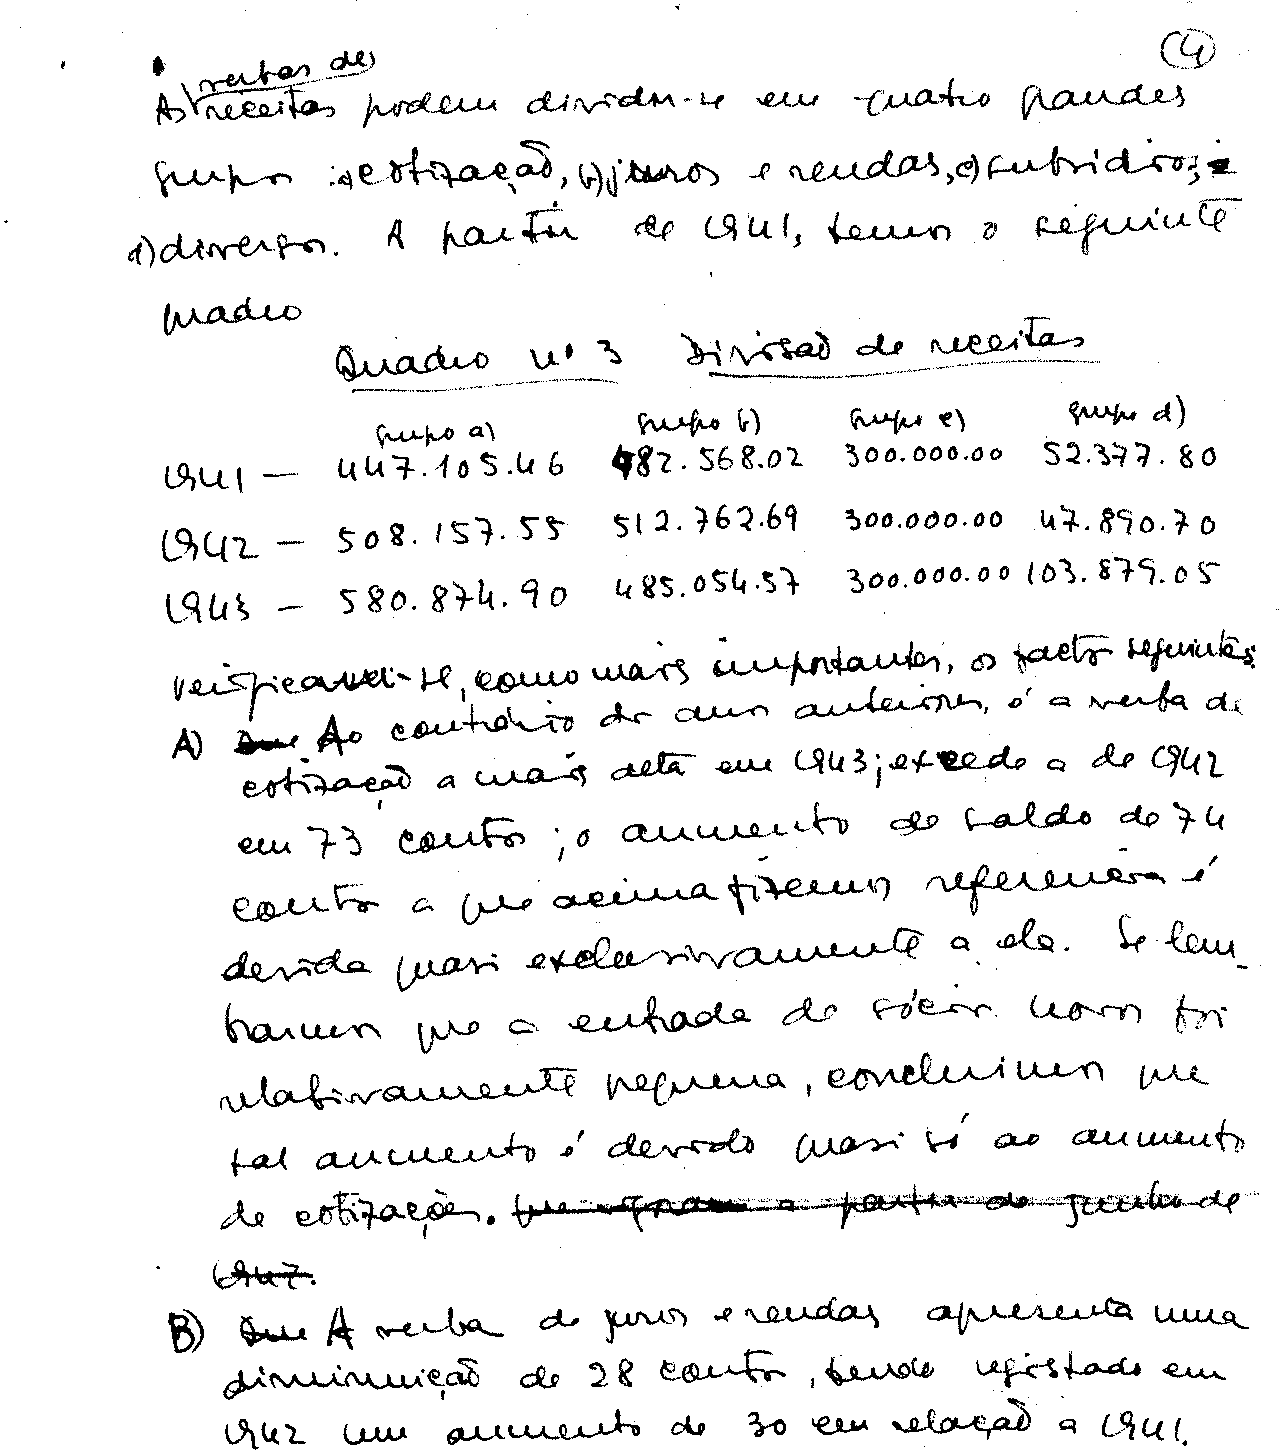 (4)
verbas de
As receitas podem dividir-se em quatro grandes
grupos: a) cotização, b) juros e rendas, c) subsidios,
d) diversos. A partir de 1941, temos o seguinte
quadro
Quadro nº 3 Divisão de receitas
grupo a) grupo b) grupo c) grupo d)
1941 — 447.105.46 482.568.02 300.000.00 52.377.80
1942 — 508.157.55 512.762.69 300.000.00 47.890.70
1943 — 580.874.90 485.054.57 300.000.00 103.879.05
verificam-se, como mais importantes, os factos seguintes:
A) Que Ao contrário dos anos anteriores, é a verba de
cotização a mais alta em 1943; excede a de 1942
em 73 contos; o aumento de saldo de 74
contos a que acima fizemos referência é
devida quasi exclusivamente a ela. Se lem-
brarmos que a entrada de sócios novos foi
relativamente pequena, concluimos que
tal aumento é devido quasi só ao aumento
de cotizações. que vigoram a partir de junho de
1947.
B) Que A verba de juros e rendas apresenta uma
diminuição de 28 contos, tendo registado em
1942 um aumento de 30 em relação a 1941.